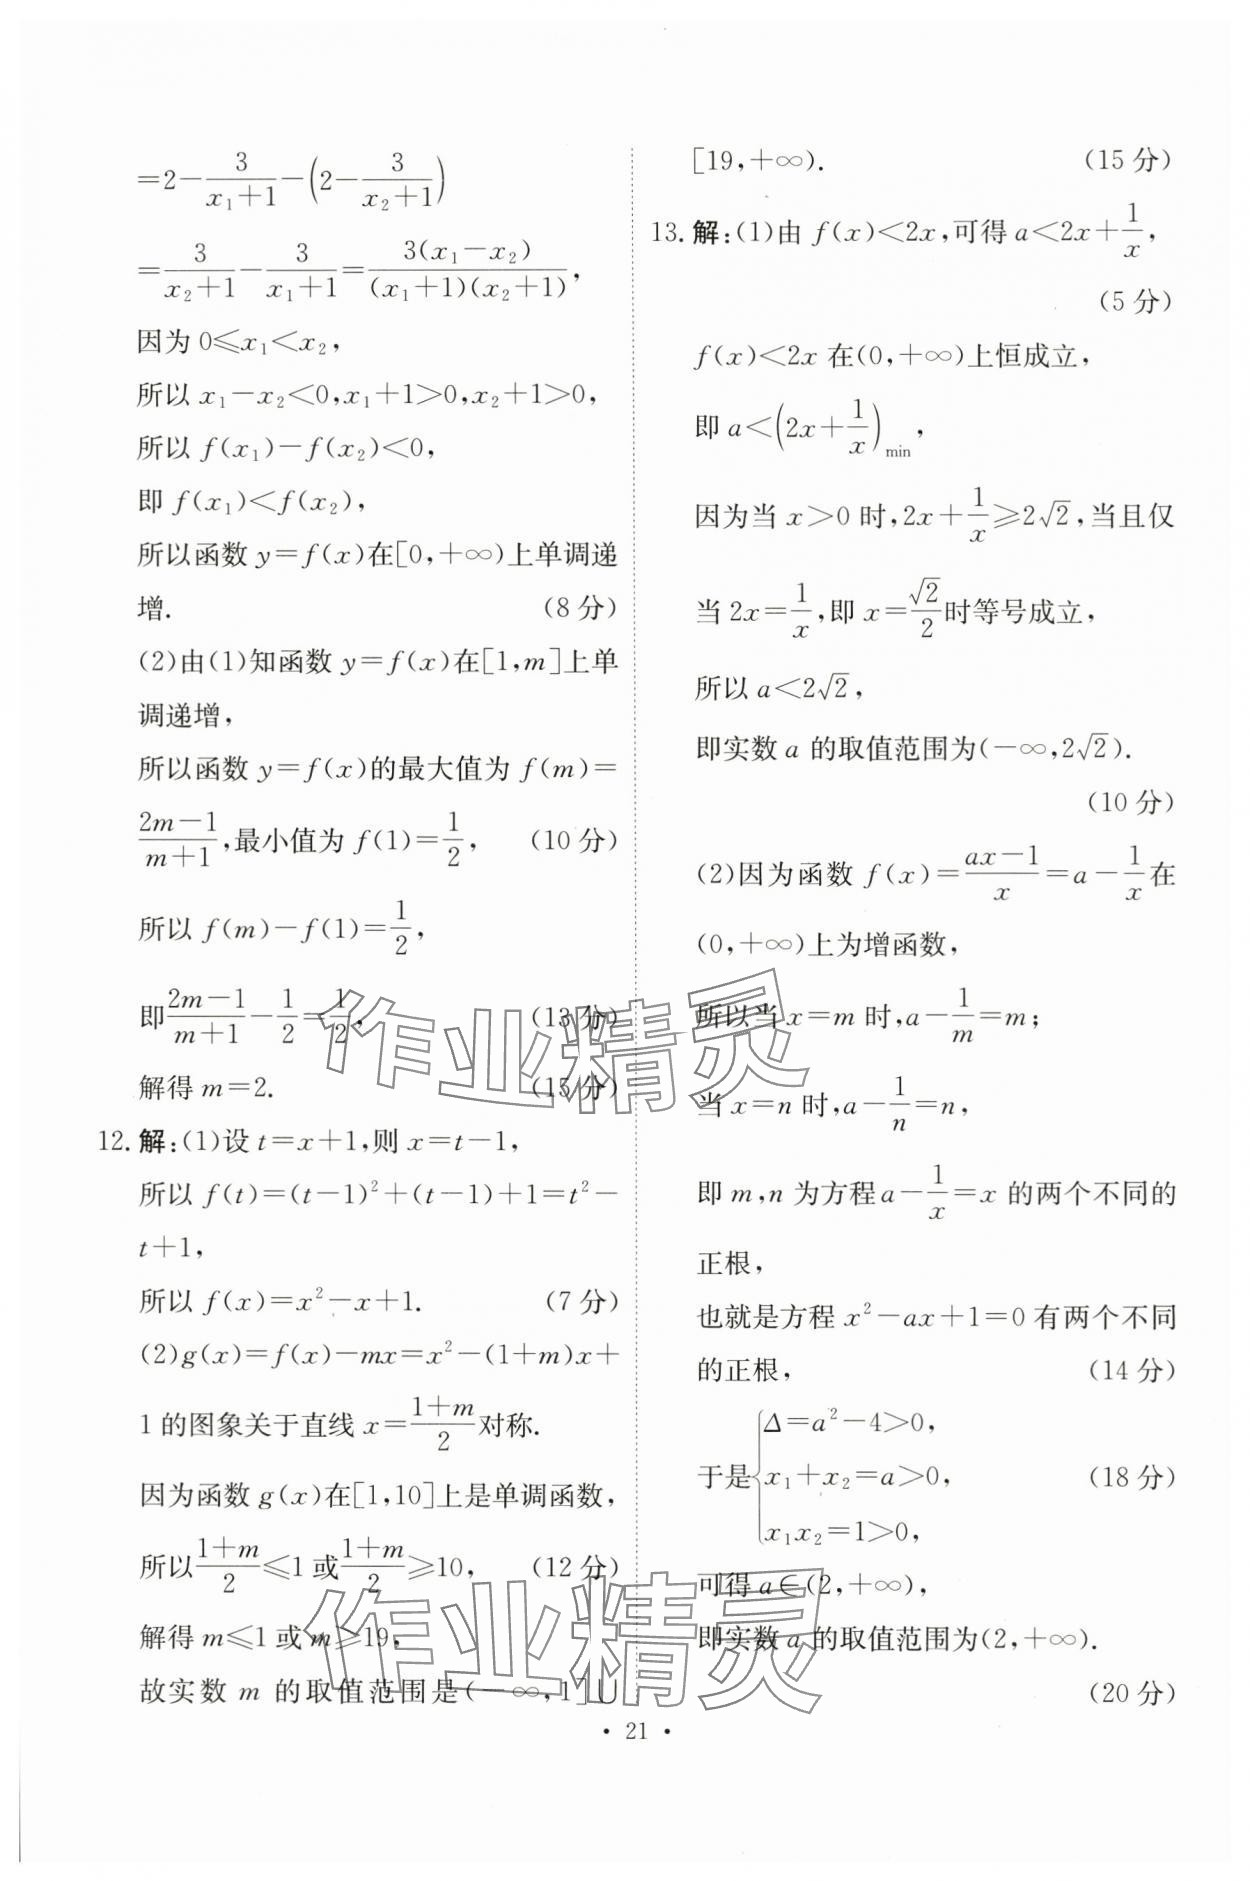 =2-\frac{3}{x₁+1}-(2-\frac{3}{x₂+1})
=\frac{3}{x₂+1}-\frac{3}{x₁+1}=\frac{3(x₁-x₂)}{(x₁+1)(x₂+1)},
因为 0≤x₁<x₂,
所以 x₁-x₂<0,x₁+1>0,x₂+1>0,
所以 f(x₁)-f(x₂)<0,
即 f(x₁)<f(x₂),
所以函数 y=f(x)在[0,+∞)上单调递
增. (8 分)
(2)由(1)知函数 y=f(x)在[1,m]上单
调递增,
所以函数 y=f(x)的最大值为 f(m)=
\frac{2m-1}{m+1},最小值为 f(1)=\frac{1}{2}, (10 分)
所以 f(m)-f(1)=\frac{1}{2},
即\frac{2m-1}{m+1}-\frac{1}{2}=\frac{1}{2}, (13 分)
解得 m=2. (15 分)
12. 解:(1)设 t=x+1,则 x=t-1,
所以 f(t)=(t-1)²+(t-1)+1=t²-
t+1,
所以 f(x)=x²-x+1. (7 分)
(2)g(x)=f(x)-mx=x²-(1+m)x+
1 的图象关于直线 x=\frac{1+m}{2}对称.
因为函数 g(x)在[1,10]上是单调函数,
所以\frac{1+m}{2}≤1 或\frac{1+m}{2}≥10, (12 分)
解得 m≤1 或 m≥19,
故实数 m 的取值范围是(-∞,1]∪
[19,+∞). (15 分)
13. 解:(1)由 f(x)<2x,可得 a<2x+\frac{1}{x},
(5 分)
f(x)<2x 在(0,+∞)上恒成立,
即 a<(2x+\frac{1}{x})_{min},
因为当 x>0 时,2x+\frac{1}{x}≥2√2,当且仅
当 2x=\frac{1}{x},即 x=\frac{√2}{2}时等号成立,
所以 a<2√2,
即实数 a 的取值范围为(-∞,2√2).
(10 分)
(2)因为函数 f(x)=\frac{ax-1}{x}=a-\frac{1}{x}在
(0,+∞)上为增函数,
所以当 x=m 时,a-\frac{1}{m}=m;
当 x=n 时,a-\frac{1}{n}=n,
即 m,n 为方程 a-\frac{1}{x}=x 的两个不同的
正根,
也就是方程 x²-ax+1=0 有两个不同
的正根, (14 分)
于是{Δ=a²-4>0,
x₁+x₂=a>0, (18 分)
x₁x₂=1>0,
可得 a∈(2,+∞),
即实数 a 的取值范围为(2,+∞).
(20 分)
• 21 •
作业精灵
作业精灵